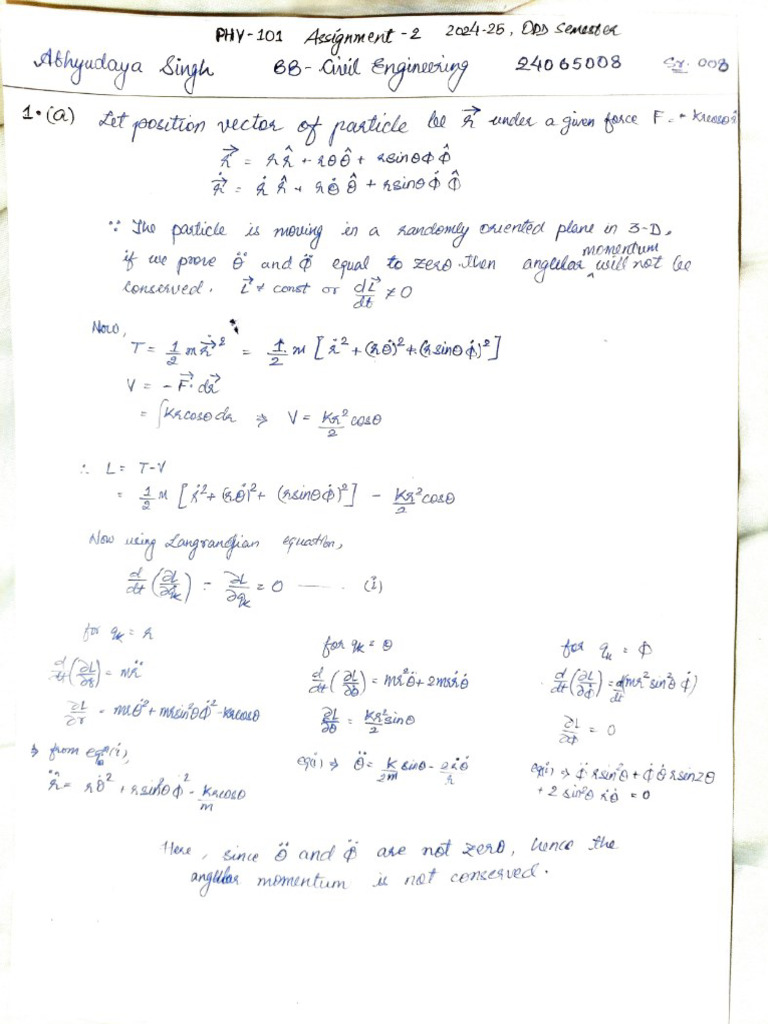 PHY-101 Assignment-2 2024-25, ODD Semester
Abhyudaya Singh BB-Civil Engineering 24065008 Sr. 008
1.(a) Let position vector of particle be r⃗ under a given force F = - Krcosθ r̂
r⃗ = r r̂ + rθ θ̂ + rsinθ ϕ ϕ̂
ṙ⃗ = ṙ r̂ + rθ̇ θ̂ + rsinθ ϕ̇ ϕ̂
∵ The particle is moving in a randomly oriented plane in 3-D,
if we prove θ̈ and ϕ̈ equal to zero then angular momentum will not be
conserved. L⃗ ≠ const or dL⃗/dt ≠ 0
Now,
T = 1/2 m ṙ⃗² = 1/2 m [ṙ² + (rθ̇)² + (rsinθ ϕ̇)²]
V = -F⃗·dr⃗
= ∫Krcosθdr ⇒ V = Kr²/2 cosθ
∴ L = T-V
= 1/2 m [ṙ² + (rθ̇)² + (rsinθϕ̇)²] - Kr²/2 cosθ
Now using Langrandgian equation,
d/dt (∂L/∂q̇k) - ∂L/∂qk = 0 —— (i)
for qk = r
d/dt (∂L/∂ṙ) = mr̈
∂L/∂r = mrθ̇² + mrsin²θϕ̇² - krcosθ
⇒ from eqn(i),
r̈ = rθ̇² + rsin²θ ϕ̇² - krcosθ/m
for qk = θ
d/dt (∂L/∂θ̇) = mr²θ̈ + 2mrṙθ̇
∂L/∂θ = Kr²/2 sinθ
eq(i) ⇒ θ̈ = k/2m sinθ - 2ṙθ̇/r
for qk = ϕ
d/dt (∂L/∂ϕ̇) = d/dt(mr²sin²θ ϕ̇)
∂L/∂ϕ = 0
eq(i) ⇒ ϕ̈ rsin²θ + ϕ̇ θ̇ rsin2θ
+ 2 sin²θ ṙϕ̇ = 0
Here, since θ̈ and ϕ̈ are not zero, hence the
angular momentum is not conserved.